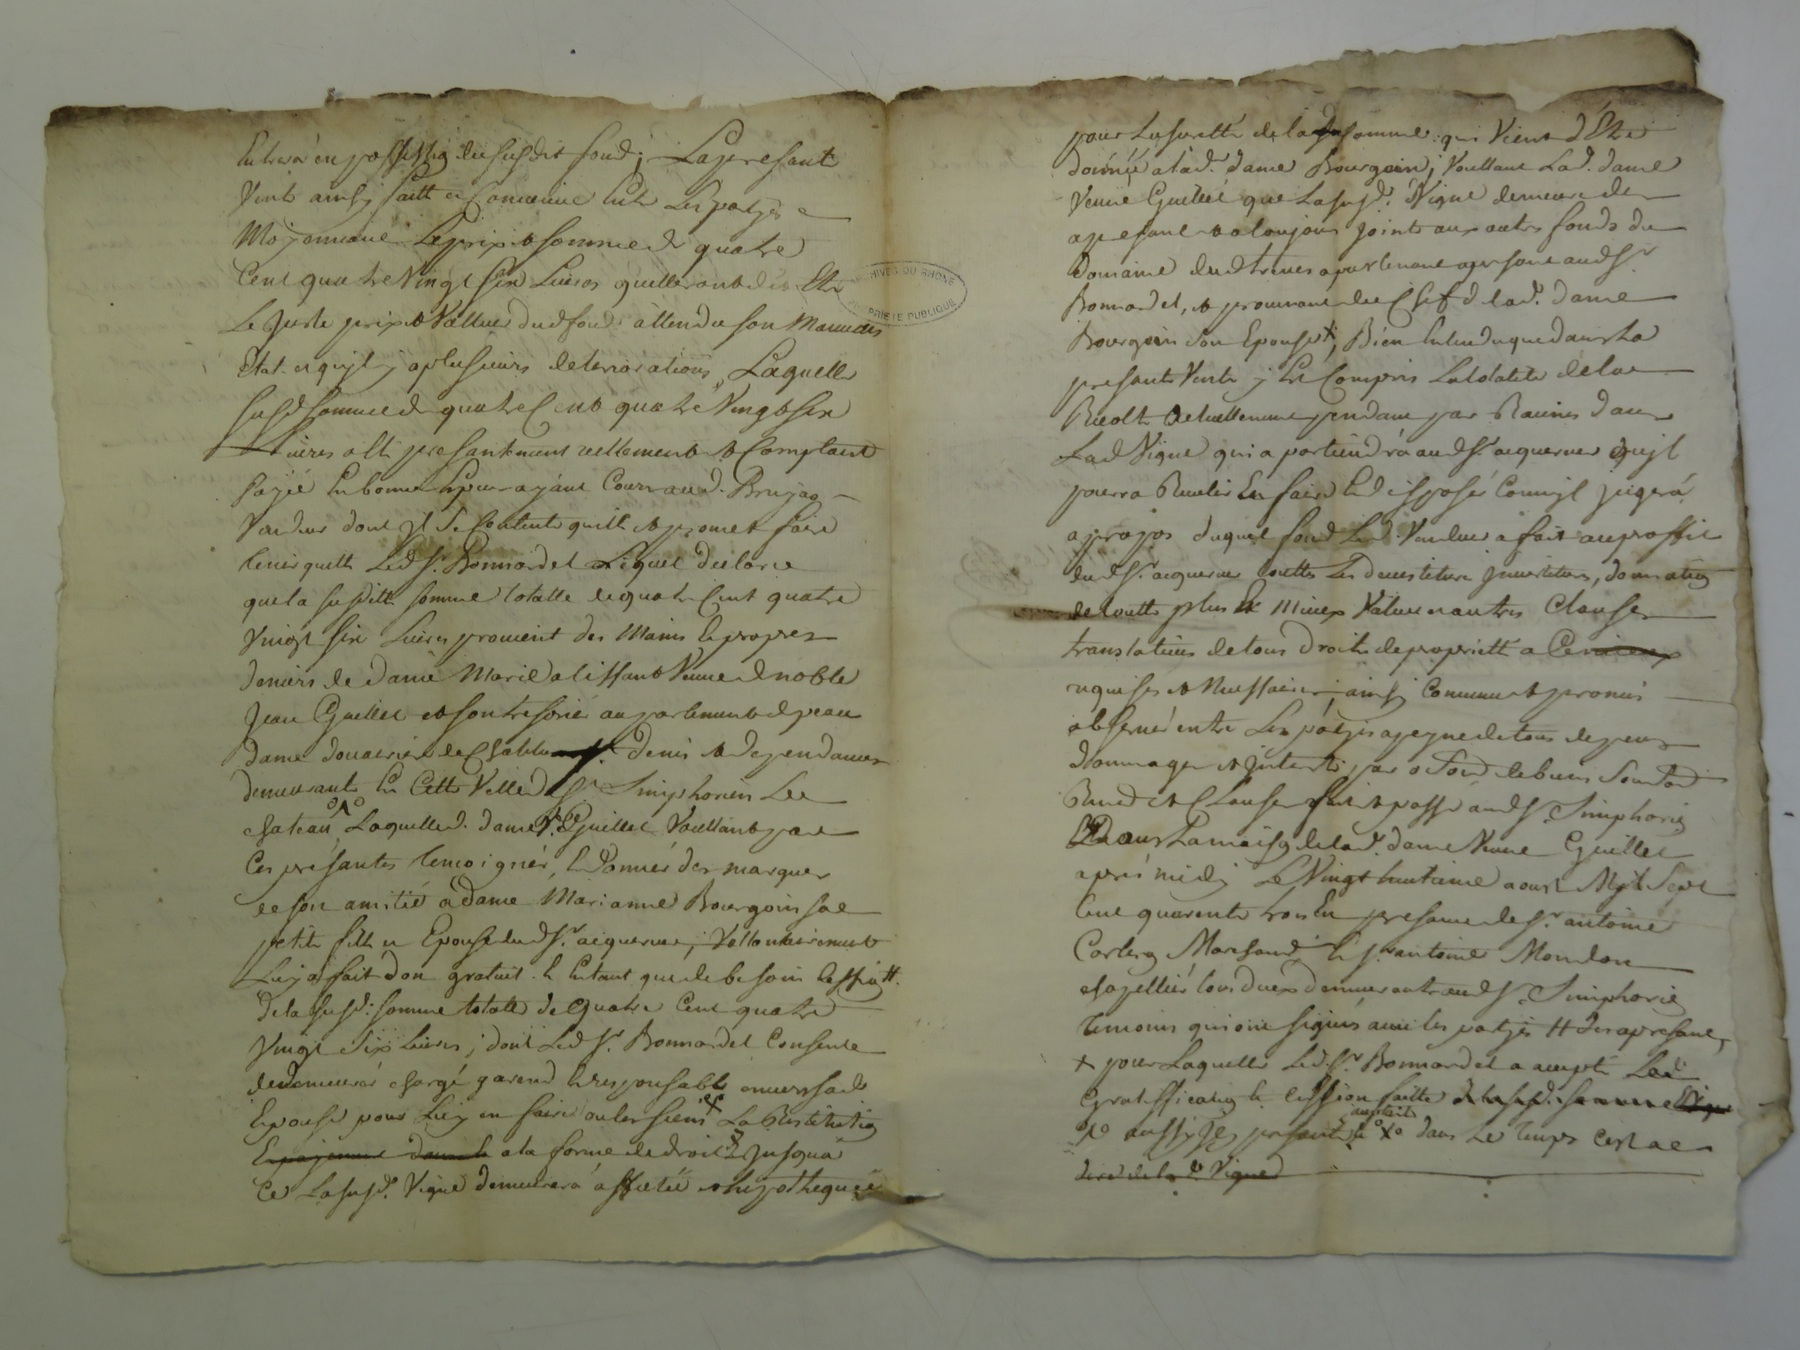 Entrer en possession du susdit fond; La presante
Vente ainsy faitte et Convenue Entre Les partyes
Moyennant Le prix et somme de quatre
Cent quatre Vingt six Livres quelles ont dit Etre
Le Juste prix et Valleur dud fond attendu son Mauvais
Etat et qu'il y a plusieurs deteriorations, Laquelle
susd somme de quatre Cent quatre Vingt six
Livres a Eté presantement reellement et Comptant
payée En bonnes Especes ayant Cours aud. Brujas
Vandeur dont Il Se Contente quitte et promet faire
tenir quitte Led Sr. Bonnardel Lequel declare
que la susditte somme totalle de quatre Cent quatre
Vingt six Livres provient des Mains Et propres
deniers de dame Marie Veuve de noble
Jean Guillet
dame douairiere de St. Denis et dependances
demeurant En Cette Ville de St Simphorien Le
chateau Laquelle d. dame Ve. Guillet Voullant par
Ces présantes temoigner, Et donner des marques
de son amitié a dame Marianne Bourgoin sa
petite fille et Epouse dud Sr. acquereur, Vollontairement
Luy a fait don gratuit Et Entant que de besoin Cession
de la susd: somme totalle de Quatre Cent quatre
Vingt Six Livres; dont Led Sr. Bonnardel Consent
de demeurer chargé garend Et responsable envers sad
Epouse pour Luy en faire ou les siens La Restitution
a la forme de droit Jusqua
Ce La susd. Vigne demeurera affectée et hipothequée
pour La suretté de lad somme qui Vient d'Etre
donnée a lad. dame Bourgoin; Voullant Lad. dame
Veuve Guillet que La susd. Vigne demeure des
a presant et a toujours Jointe aux autres fonds du
Domaine apartenant a presant aud Sr.
Bonnardel, et provenant du Chef de lad. dame
Bourgoin son Epouse x, Bien Entendu que dans La
presante Vente y Est Compris La totalité de la
Recolte actuellement pendant par Racines dans
Lad Vigne qui apartiendra aud Sr. acquereur qu'il
pourra Receuillir En faire Et disposer Comm'il Jugera
a propos duquel fond Led. Vandeur a fait au proffit
dud Sr. acquereur touttes Les devestiture Jnvestiture, donnation
de toutte plus Et Mieux Value et autres Clauses
translatives de tous Droits de propriétté a Ce
requises et Necessaires; ainsi Convenu et promis
observer entre Les partyes a peyne de tous depens
dommages et Jnterets, par
Renon et Clauses fait et passé aud St. Simphorien
dans La maison de lad. dame Veuve Guillet
aprés midy Le Vingt huitieme aoust Mil Sept
Cent quarente trois En presance de Sr. antoine
Marchand, Et Sr. antoine Mondon
chapellier tous deux demeurants aud St. Simphorien
temoins qui ont signés avec les partyes
x pour Laquelle Led. Sr. Bonnardel a accepté Lad
Gratiffication Et Cession faitte de la susd. somme
dans Le temps
lad Vigne
ARCHIVES DU RHÔNE
PROPRIÉTÉ PUBLIQUE